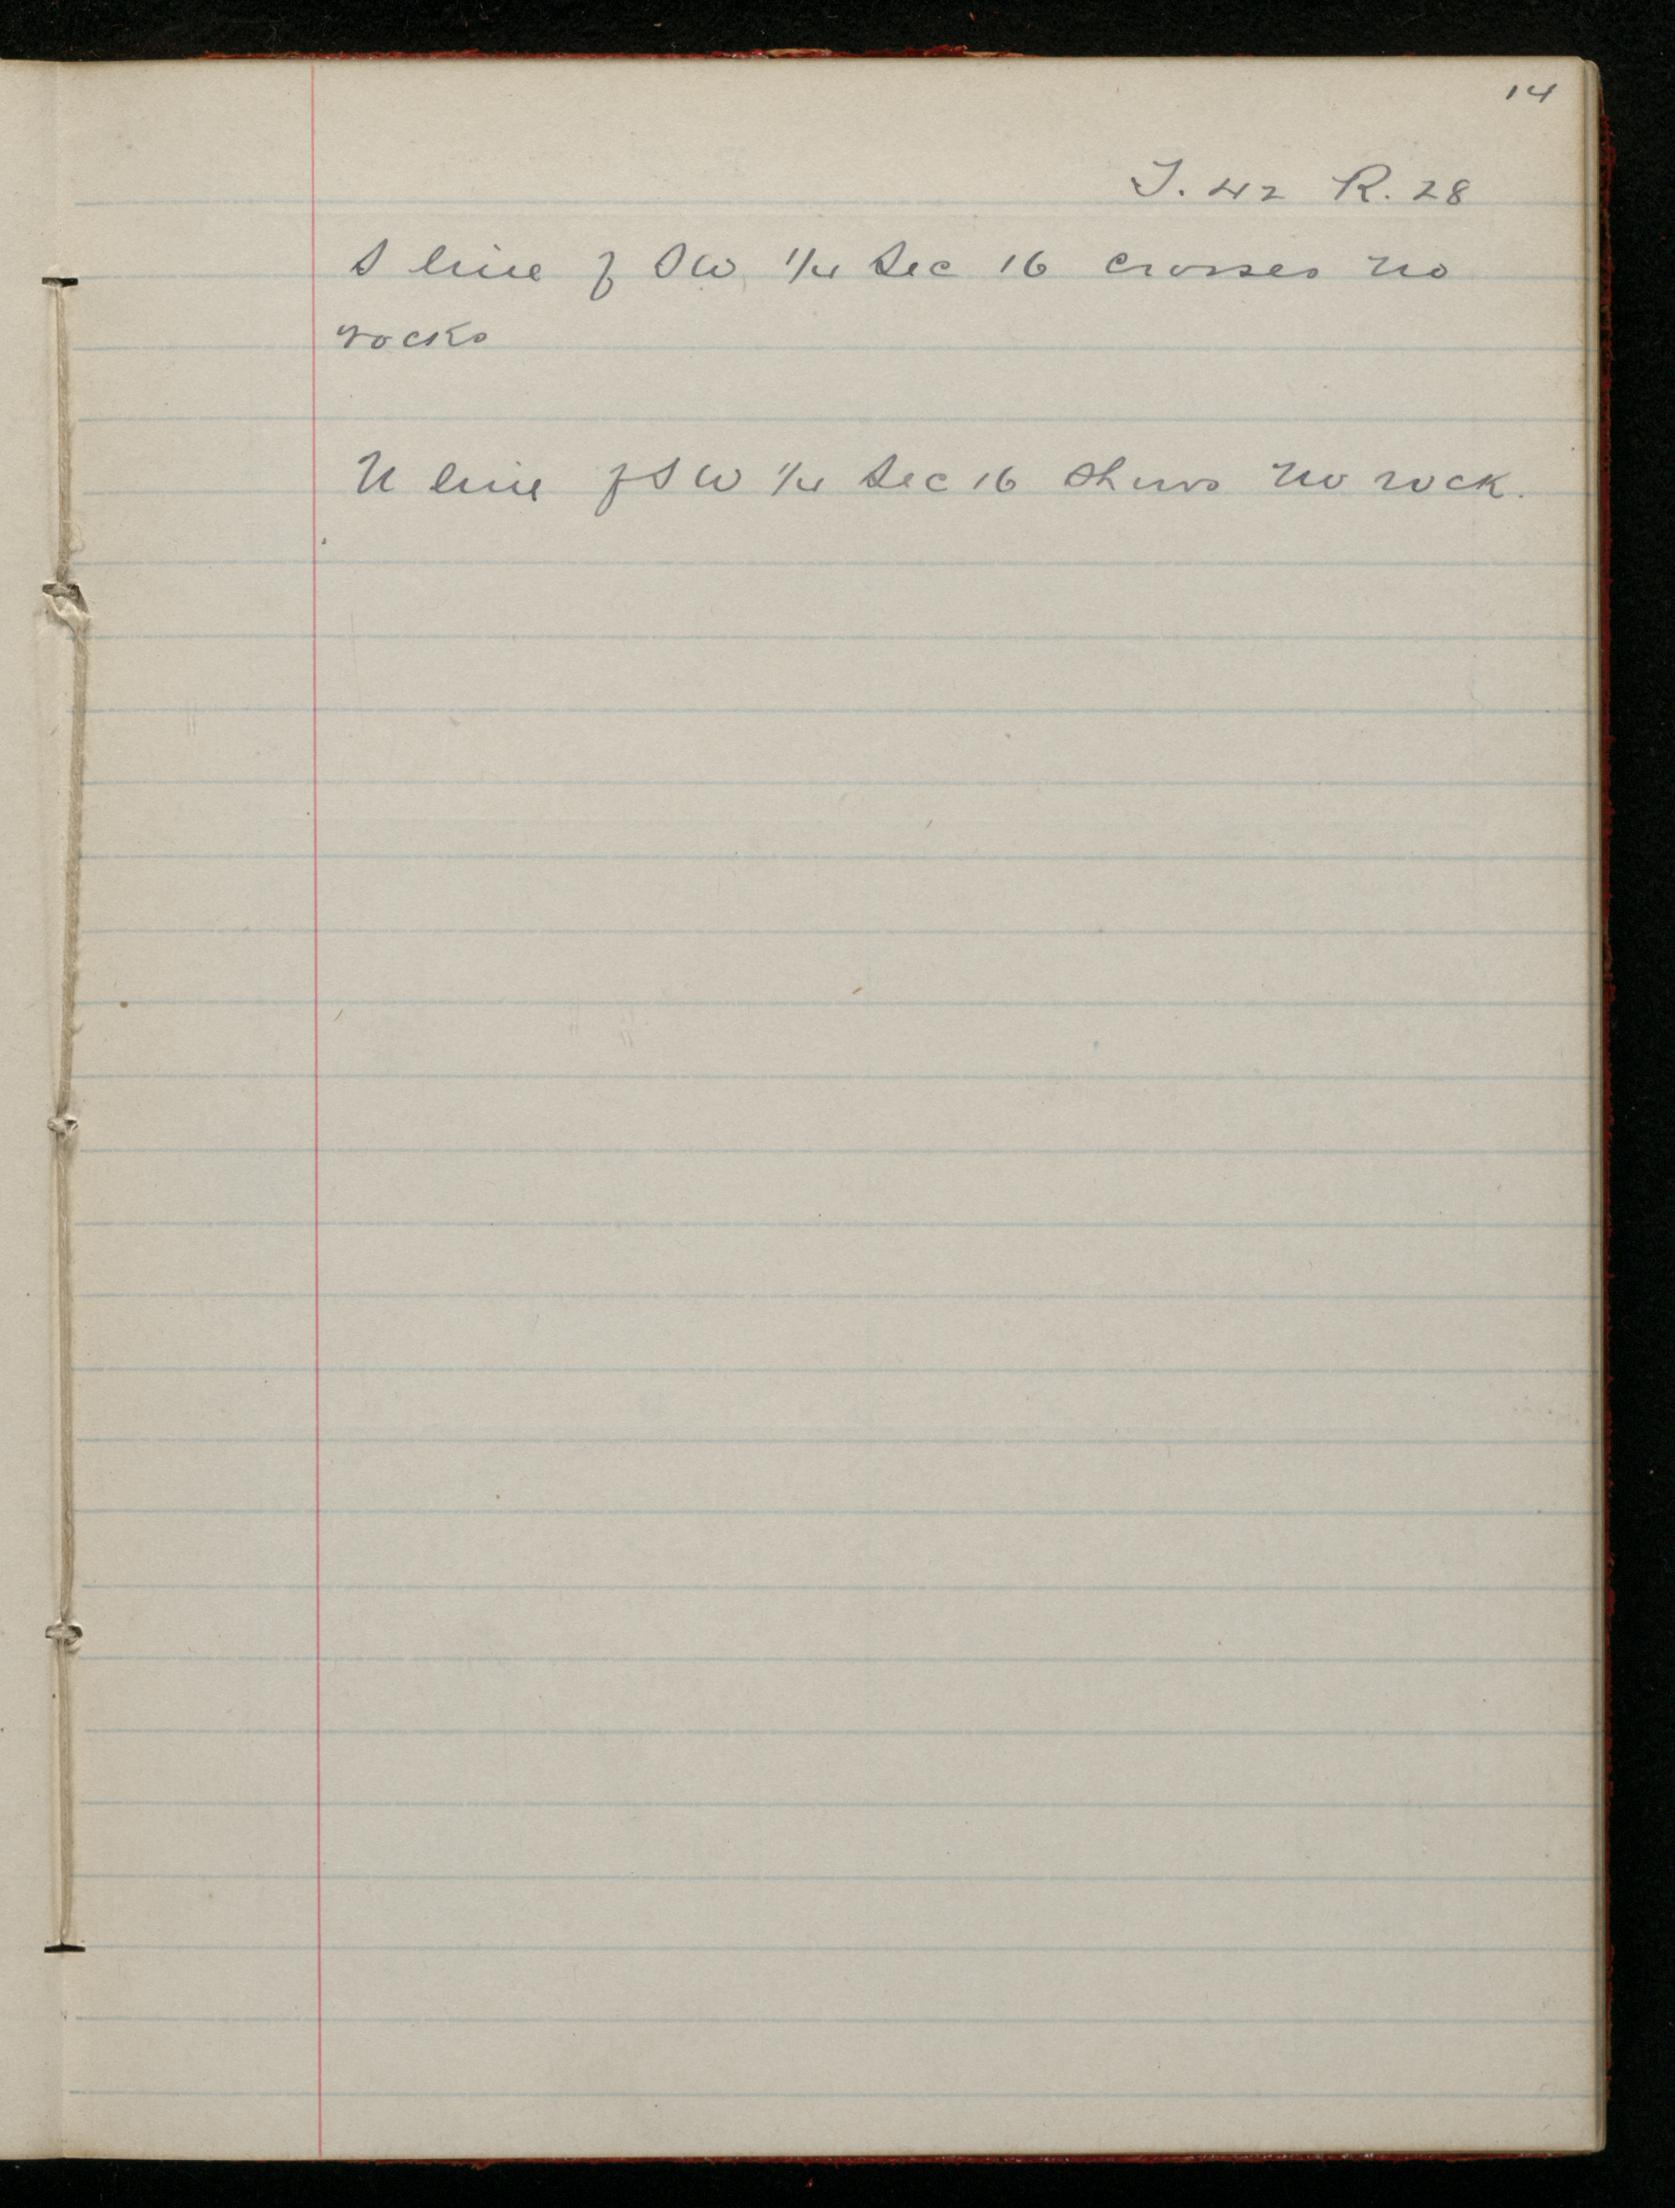 14
T. 42 R. 28
S line of SW 1/4 Sec 16 crosses no
rocks
N line of SW 1/4 Sec 16 shows no rock.